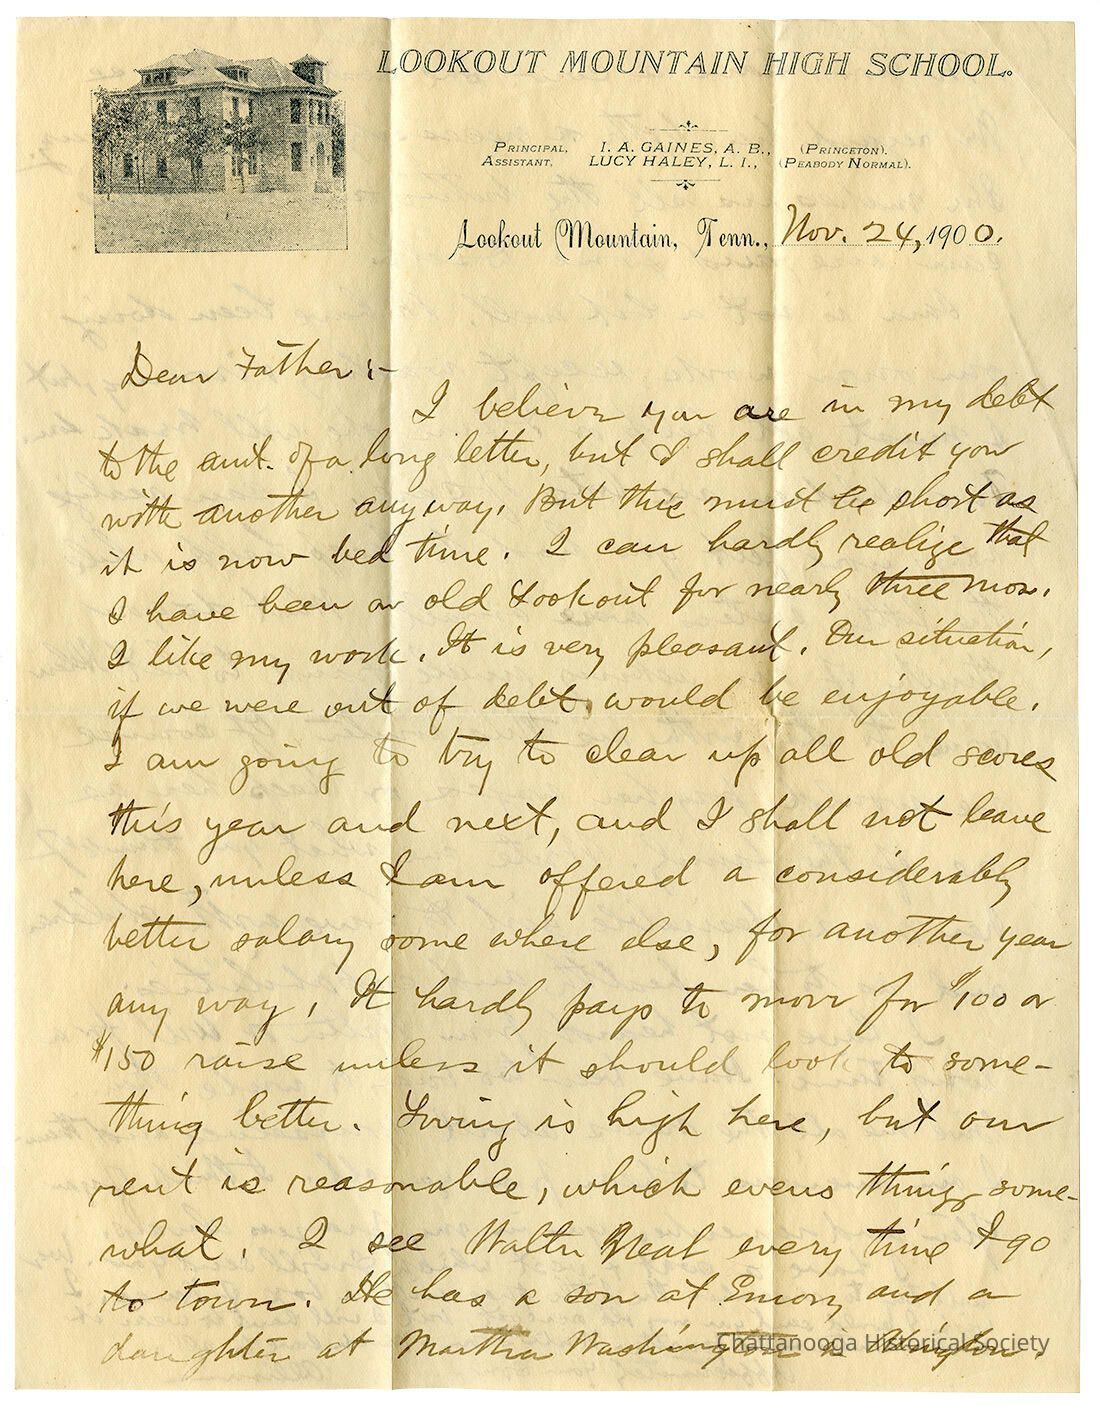 LOOKOUT MOUNTAIN HIGH SCHOOL.
PRINCIPAL, I. A. GAINES, A. B., (PRINCETON).
ASSISTANT, LUCY HALEY, L. I., (PEABODY NORMAL).
Lookout Mountain, Tenn., Nov. 24, 1900.
Dear Father:-
I believe you are in my debt
to the amt. of a long letter, but I shall credit you
with another anyway. But this must be short as
it is now bed time. I can hardly realize that
I have been on old Lookout for nearly three mos.
I like my work. It is very pleasant. Our situation,
if we were out of debt, would be enjoyable.
I am going to try to clear up all old scores
this year and next, and I shall not leave
here, unless I am offered a considerably
better salary some where else, for another year
any way. It hardly pays to move for $100 or
$150 raise unless it should look to some-
thing better. Living is high here, but our
rent is reasonable, which evens things some-
what. I see Walter Neal every time I go
to town. He has a son at Emory and a
daughter at Martha Washington in Abingdon.
Chattanooga Historical Society